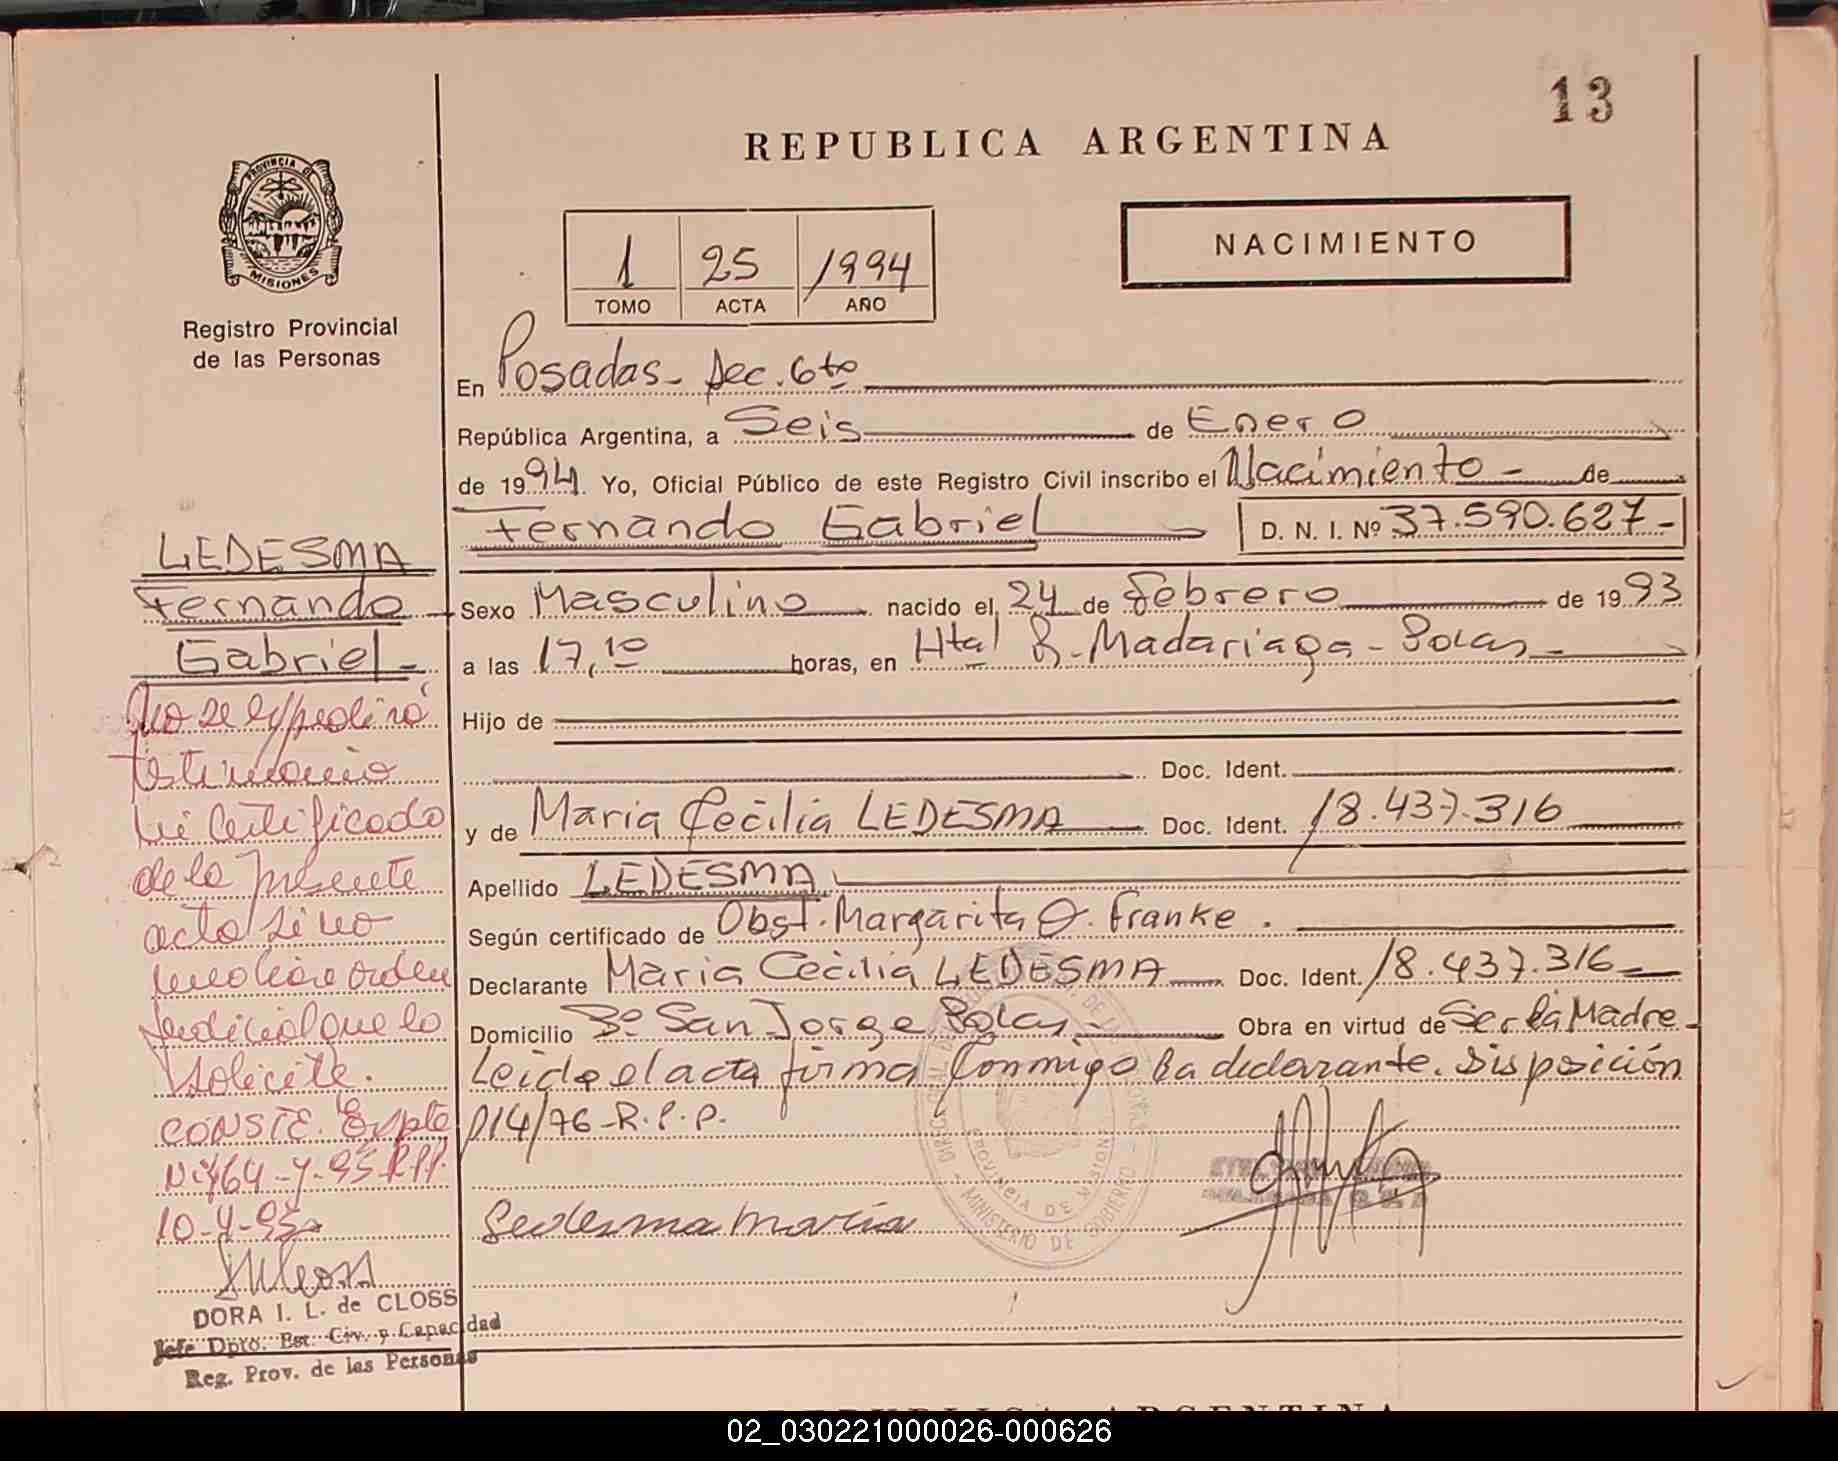 13
REPUBLICA ARGENTINA
PROVINCIA DE
MISIONES
Registro Provincial
de las Personas
1 25 1994
TOMO ACTA AÑO
NACIMIENTO
En Posadas - Sec. 6ta
República Argentina, a Seis de Enero
de 1994. Yo, Oficial Público de este Registro Civil inscribo el Nacimiento - de
Fernando Gabriel D. N. I. Nº 37.590.627-
Sexo Masculino nacido el 24 de febrero de 1993
a las 17,10 horas, en Htal R. Madariaga - Pdas -
Hijo de
Doc. Ident.
y de Maria Cecilia LEDESMA Doc. Ident. 18.437.316
Apellido LEDESMA
Según certificado de Obst. Margarita O. Franke.
Declarante Maria Cecilia LEDESMA Doc. Ident. 18.437.316
Domicilio Bº San Jorge Pdas - Obra en virtud de Ser la Madre -
Leida el acta firma Conmigo la declarante. Disposición
014/76-R.P.P.
Ledesma Maria
LEDESMA
Fernando
Gabriel -
No se expedirá
testimonio
ni certificado
de la presente
acta sino
mediare orden
judicial que lo
solicite.
CONSTE. Expte
10-4-95
DORA I. L. de CLOSS
Jefe Dpto. Est. Civ. y Capacidad
Reg. Prov. de las Personas
PROVINCIA DE MISIONES
MINISTERIO DE GOBIERNO
REPUBLICA ARGENTINA
02_030221000026-000626